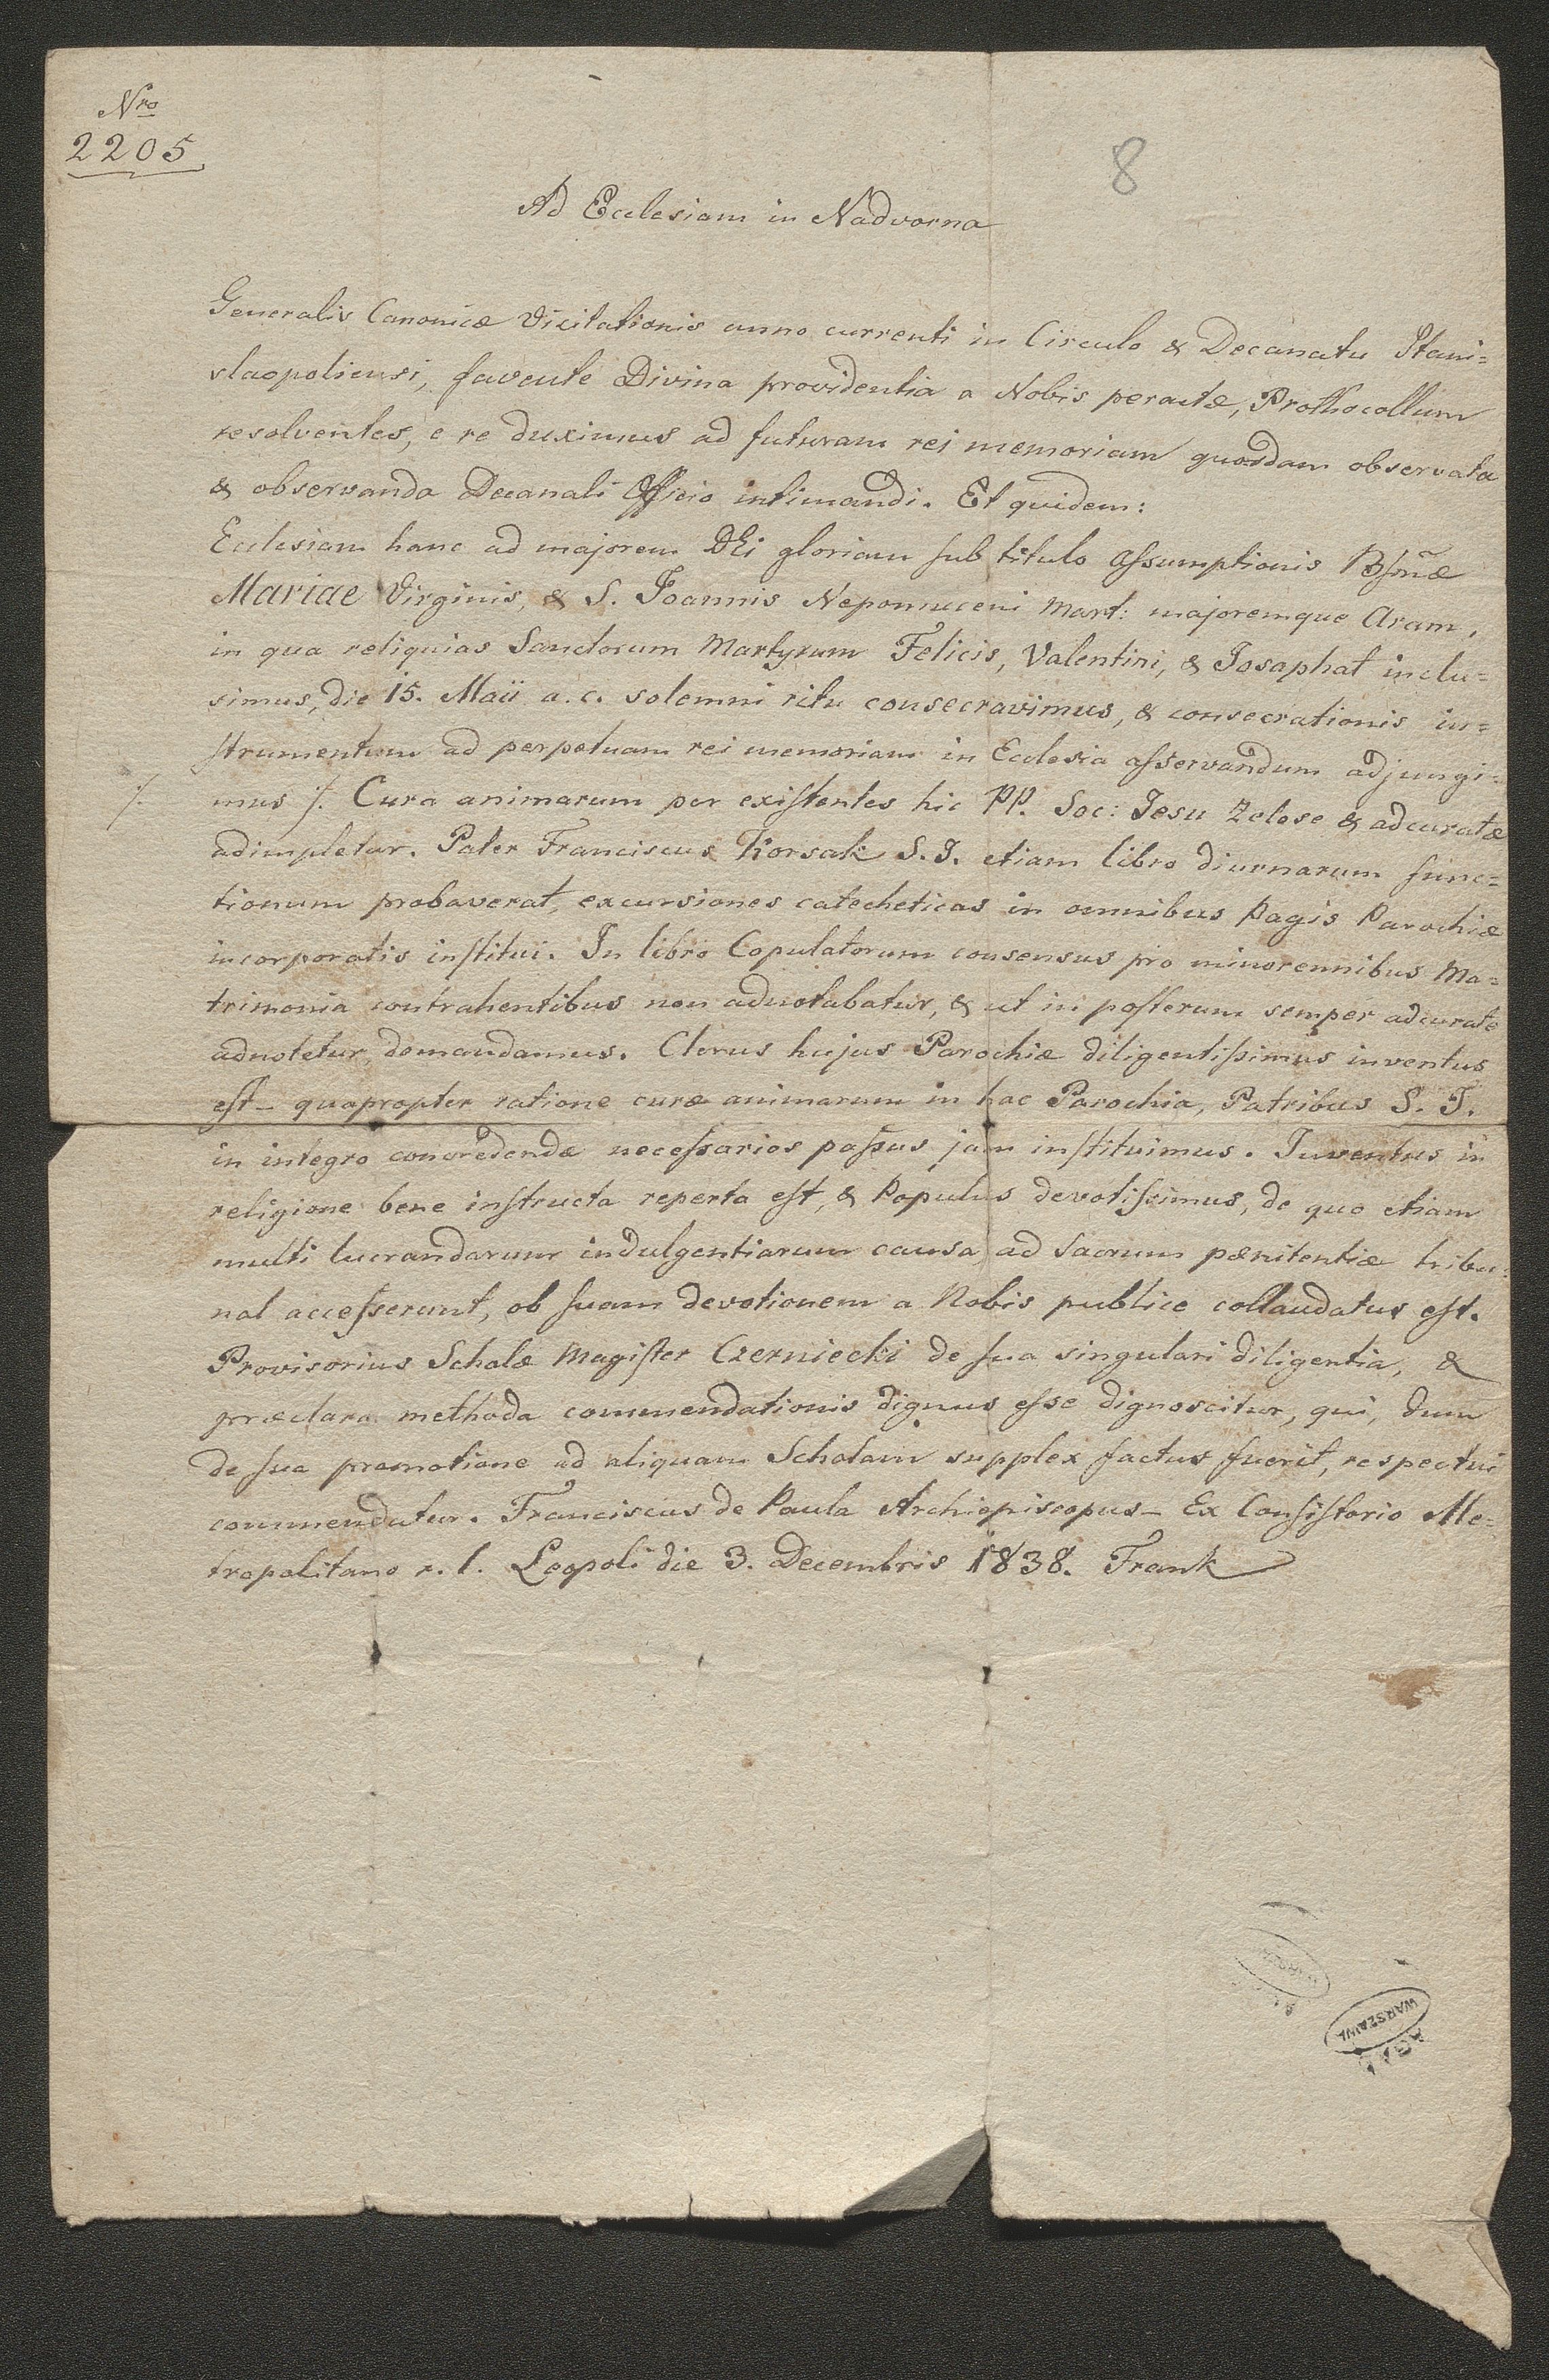 Nro
2205
8
Ad Ecclesiam in Nadvorna
Generalis Canonicæ Visitationis anno currenti in Circulo & Decanatu Stani=
slaopoliensi, favente Divina providentia a Nobis peractæ, Prothocollum
resolventes, e re duximus ad futuram rei memoriam quædam observata
& observanda Decanali Officio intimandi. Et quidem:
Ecclesiam hanc ad majorem DEi gloriam sub titulo Assumptionis Bssmæ
Mariae Virginis, & S. Joannis Nepomuceni Mart: majoremque Aram,
in qua reliquias Sanctorum Martyrum Felicis, Valentini, & Josaphat inclu=
simus, die 15. Maii a. c. solemni ritu consecravimus, & consecrationis in=
strumentum ad perpetuam rei memoriam in Ecclesia asservandum adjungi=
./. mus ./. Cura animarum per existentes hic PP. Soc: Jesu zelose & adcuratæ
adimpletur. Pater Franciscus Korsak S. J. etiam libro diurnarum func=
tionum probaverat, excursiones catecheticas in omnibus Pagis Parochiæ
incorporatis institui. In libro Copulatorum consensus pro minorennibus Ma=
trimonia contrahentibus non adnotabatur, & ut in posterum semper adcurate
adnotetur demandamus. Clerus hujus Parochiæ diligentissimus inventus
est - quapropter ratione curæ animarum in hac Parochia, Patribus S. J.
in integro concredendæ necessarios passus jam instituimus. Juventus in
religione bene instructa reperta est, & Populus devotissimus, de quo etiam
multi lucrandarum indulgentiarum causa ad sacrum pænitentiæ tribu=
nal accesserunt, ob suam devotionem a Nobis publice collaudatus est.
Provisorius Scholæ Magister Czerniecki de sua singulari diligentia, &
præclara methoda commendationis dignus esse dignoscitur, qui, dum
de sua promotione ad aliquam Scholam supplex factus fuerit, respectui
commendatur. Franciscus de Paula Archiepiscopus - Ex Consistorio Me=
tropolitano r. l. Leopoli die 3. Decembris 1838. Frank
AGAD
WARSZAWA